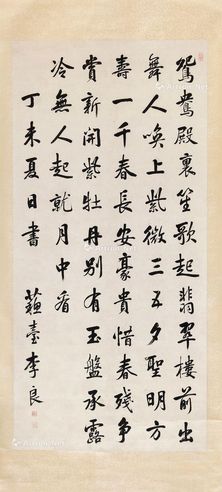 鴛鴦殿裏笙歌起翡翠樓前出
舞人喚上紫微三五夕聖明方
壽一千春長安豪貴惜春殘爭
賞新開紫牡丹別有玉盤承露
冷無人起就月中看
丁未夏日書 蘇臺李良